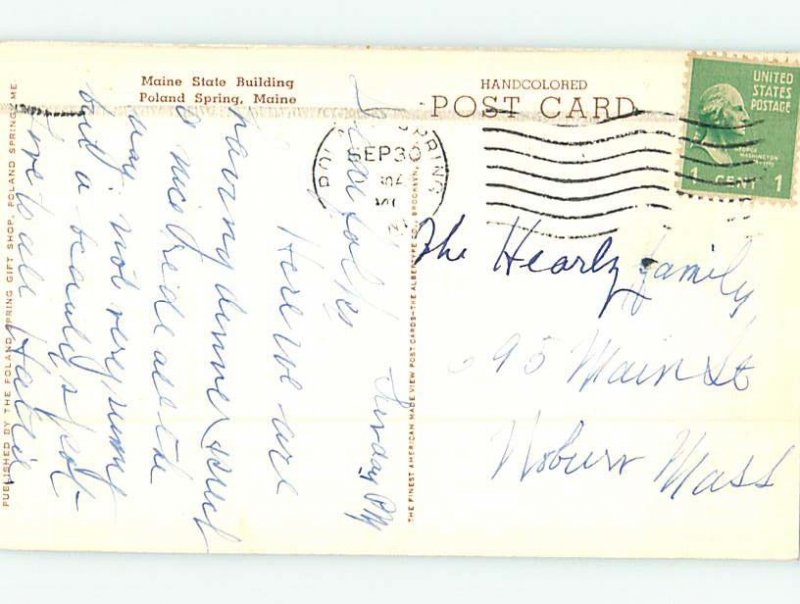 Maine State Building
Poland Spring, Maine
HANDCOLORED
POST CARD
UNITED
STATES
POSTAGE
WASHINGTON
1 CENT 1
SEP 30
PUBLISHED BY THE POLAND SPRING GIFT SHOP, POLAND SPRING, ME.
THE FINEST AMERICAN MADE VIEW POST CARDS—THE ALBERTYPE CO., BROOKLYN,
Sunday PM
Dear folks
Here we are
having dinner such
a nice ride all the
way. not very sunny
but a beauty spot
Love to all Hattie
The Hearly family,
95 Main St
Woburn Mass